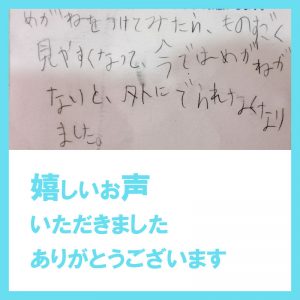 めがねをつけてみたら、ものすごく
見やすくなって、今ではめがねが
ないと、外にでられなくなり
ました。
嬉しいお声
いただきました
ありがとうございます